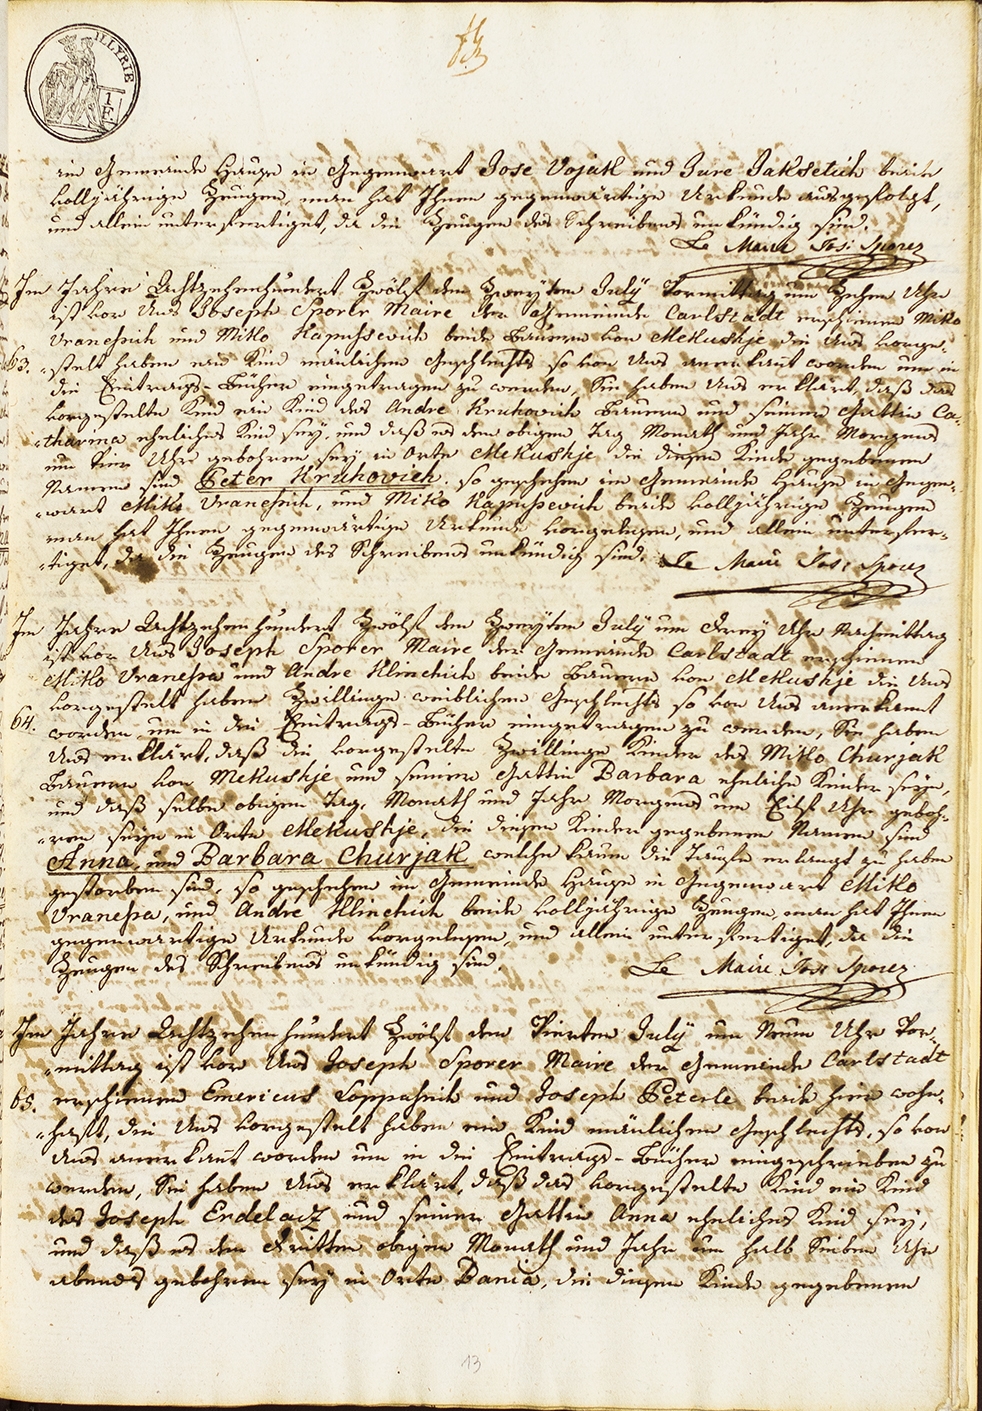 ILLYRIE
1 F.
im Gemeinde Hause in Gegenwart Jose Vojak und Jure Jaksetich beide
volljährige Zeugen, man hat Ihnen gegenwärtige Urkunde ausgefolgt,
und allein unterfertiget, da die Zeugen des Schreibens unkündig sind.
Le Maire Jos: Sporer
Im Jahre Achtzehenhundert Zwölf den Zweyten July Vormittag um Zehen Uhr
ist vor Uns Joseph Sporer Maire der Gemeinde Carlstadt erschienen Miko
Vranessich und Miko Kapussevich beide Bauern von Mekushje die Uns vorge-
63. stelt haben ein Kind mänlichen Geschlechts so von Uns anerkant worden um in
die Eintrags-Bücher eingetragen zu werden, Sie haben Uns erklärt, daß das
vorgestelte Kind ein Kind des Andre Kruhovich Bauern und seiner Gattin Ca-
tharina eheliches Kind sey, und daß es den obigen Tag Monath und Jahr Morgens
um Vier Uhr gebohren sey in Orte Mekushje die diesen Kinde gegebenen
Namen sind Peter Kruhovich. so geschehen im Gemeinde Hause in Gegen-
wart Miko Vranessich, und Miko Kapussevich beide volljährige Zeugen
man hat Ihnen gegenwärtige Urkunde vorgelesen, und allein unterfer-
tiget, da die Zeugen des Schreibens unkündig sind. Le Maire Jos: Sporer
Im Jahre Achtzehenhundert Zwölf den Zweyten July um Drey Uhr Nachmittag
ist vor Uns Joseph Sporer Maire der Gemeinde Carlstadt erschienen
Miko Vranessa und Andre Klinchich beide Bauern von Mekushje die Uns
vorgestelt haben Zwillinge weiblichen Geschlechts so von Uns anerkant
64. worden um in die Eintrags-Bücher eingetragen zu werden, Sie haben
Uns erklärt, daß die vorgestelte Zwillinge Kinder des Miko Churjak
Bauern von Mekushje und seiner Gattin Barbara eheliche Kinder seye,
und daß selbe obigen Tag, Monath und Jahr Morgens um Eilf Uhr geboh-
ren seye in Orte Mekushje, die diesen Kinder gegebenen Namen sind
Anna, und Barbara Churjak welche kaum die Taufe erlangt zu haben
gestorben sind. so geschehen im Gemeinde Hause in Gegenwart Miko
Vranessa, und Andre Klinchich beide volljährige Zeugen, man hat Ihnen
gegenwärtige Urkunde vorgelesen, und allein unterfertiget, da die
Zeugen des Schreibens unkündig sind. Le Maire Jos: Sporer
Im Jahre Achtzehenhundert Zwölf den Vierten July um Neun Uhr Vor-
mittag ist vor Uns Joseph Sporer Maire der Gemeinde Carlstadt
65. erschienen Emericus Loppasnik und Joseph Peterle beide hier wohn-
haft, die Uns vorgestelt haben ein Kind mänlichen Geschlechts, so von
Uns anerkant worden um in die Eintrags-Bücher eingeschrieben zu
werden, Sie haben Uns erklärt, daß das vorgestelte Kind ein Kind
des Joseph Erdelacz und seiner Gattin Anna eheliches Kind sey,
und daß es den Dritten obigen Monath und Jahr um halb Sieben Uhr
abends gebohren sey in Orte Bania, die diesen Kinde gegebenen
13